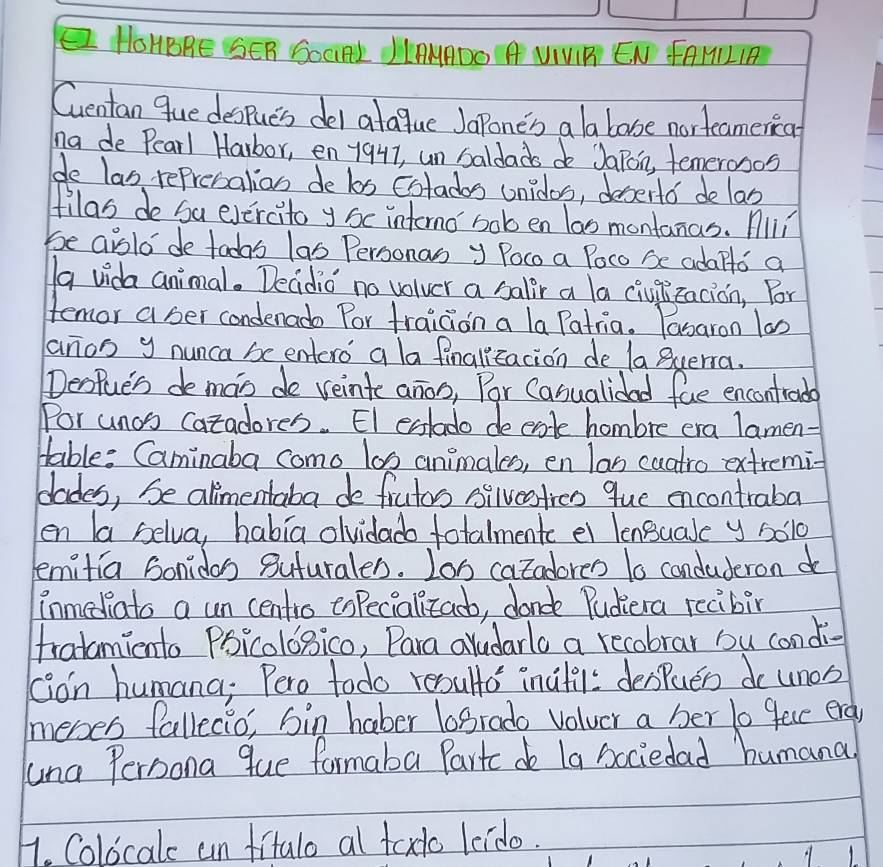 El HOMBRE SER SOCIAL LLAMADO A VIVIR EN FAMILIA
Cuentan que después del ataque Japonés a la base norteamerica-
na de Pearl Harbor, en 1941, un saldado de Japón, temerosos
de las represalias de los Estados unidos, desertó de las
filas de su ejército y se internó solo en las montañas. Allí
se aisló de todas las Personas y Poco a Poco se adaptó a
la vida animal. Decidió no volver a salir a la civilización, Por
temor a ser condenado Por traición a la Patria. Pasaron los
años y nunca se enteró a la finalización de la guerra.
Después de más de veinte años, Por Casualidad fue encontrado
Por unos cazadores. El estado de este hombre era lamen=
table: Caminaba como los animales, en las cuatro extremi-
dades, Se alimentaba de frutos silvestres que encontraba
en la selva, había olvidado totalmente el lenguaje y sólo
emitía Sonidos guturales. Los cazadores lo condujeron de
inmediato a un centro especializado, donde Pudiera recibir
tratamiento Psicológico, Para ayudarlo a recobrar su condi-
ción humana; Pero todo resultó inútil: después de unos
meses falleció, sin haber logrado volver a ser lo que era
una Persona que formaba Parte de la sociedad humana.
1. Colócale un título al texto leído.